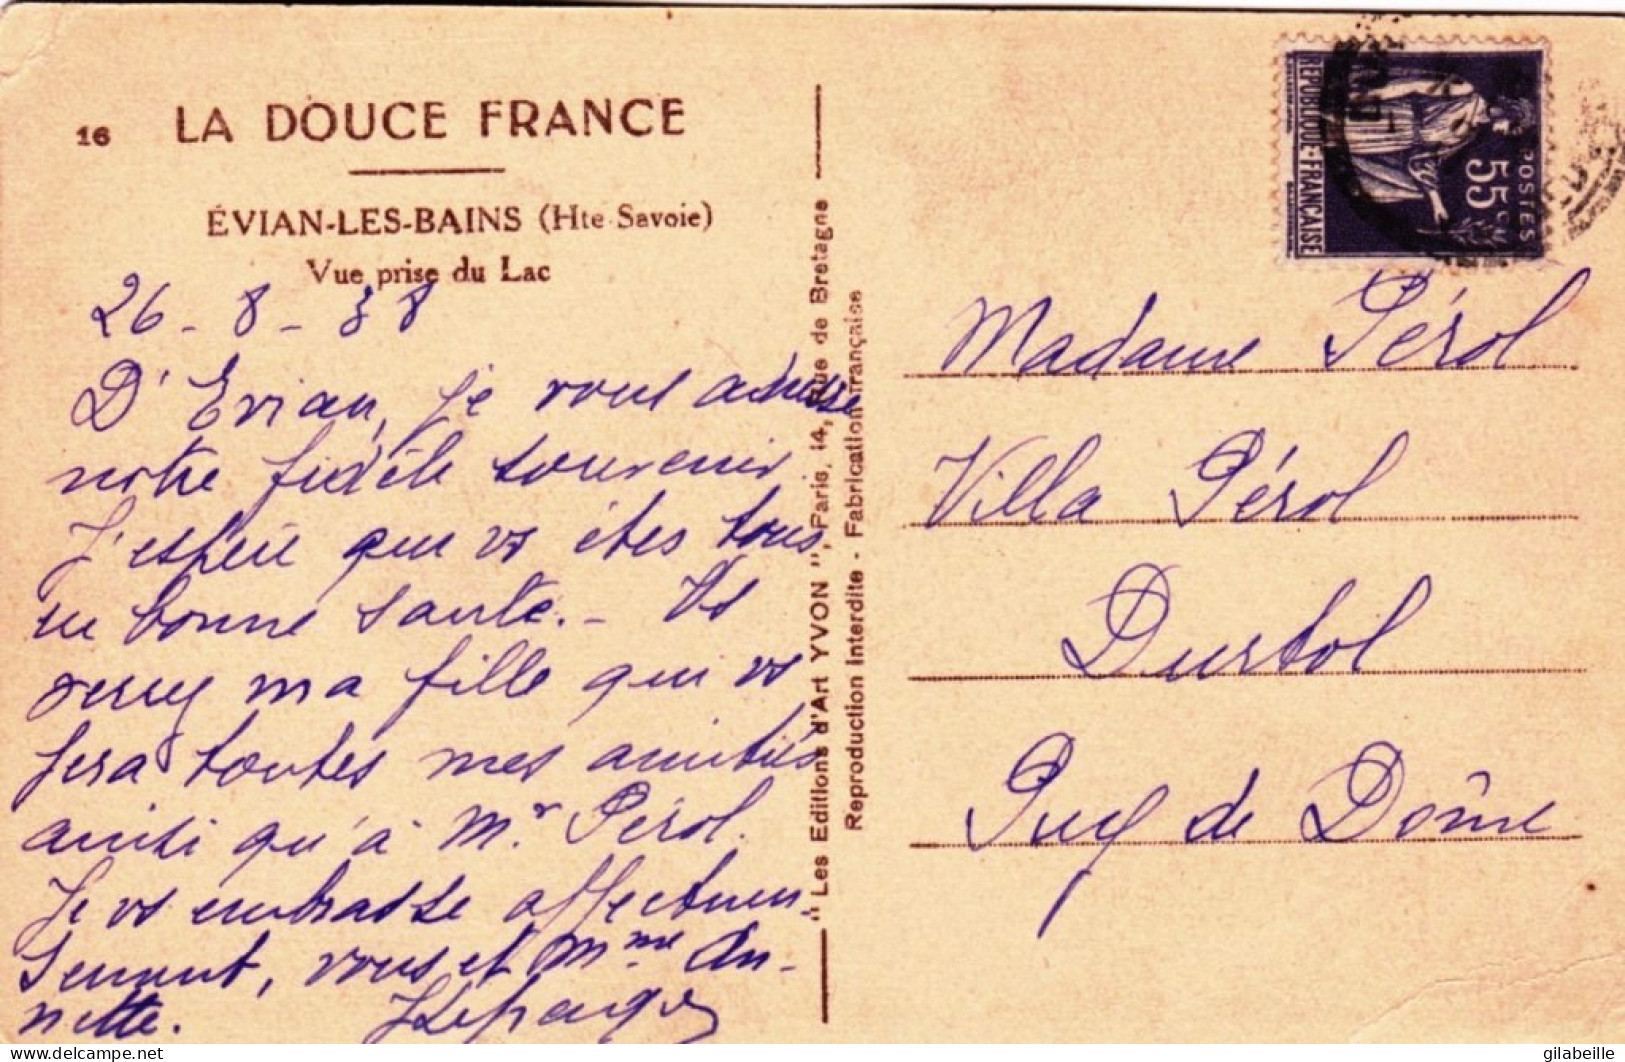 16 LA DOUCE FRANCE
ÉVIAN-LES-BAINS (Hte Savoie)
Vue prise du Lac
26 - 8 - 38
D'Evian, je vous adresse
notre fidèle souvenir
J'espère que vs êtes tous
en bonne santé. - Vs
verrez ma fille qui vs
fera toutes mes amitiés
ainsi qu'à Mr. Pérol.
Je vs embrasse affectueu-
sement, vous et Mme An-
nette.
"Les Editions d'Art YVON", Paris, 14, Rue de Bretagne
Reproduction Interdite - Fabrication française
REPUBLIQUE-FRANÇAISE
55c
POSTES
Madame Pérol
Villa Pérol
Durtol
Puy de Dôme
delcampe.net
gilabeille